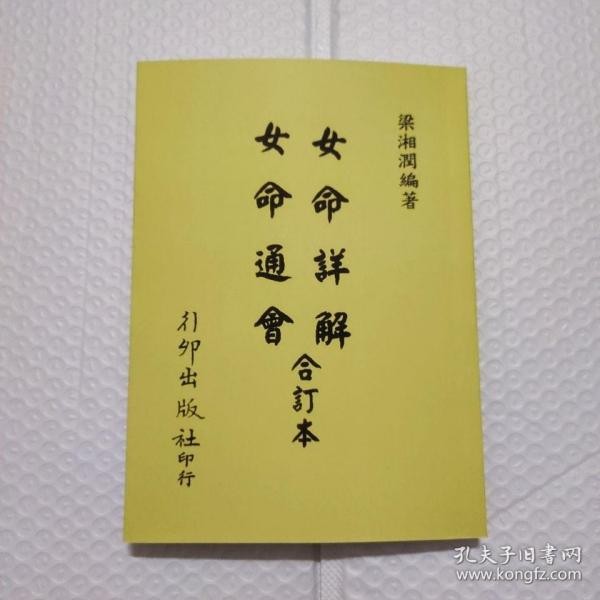 梁湘潤編著
女命詳解
女命通會
合訂本
行卯出版社印行
孔夫子旧书网
www.kongfz.com